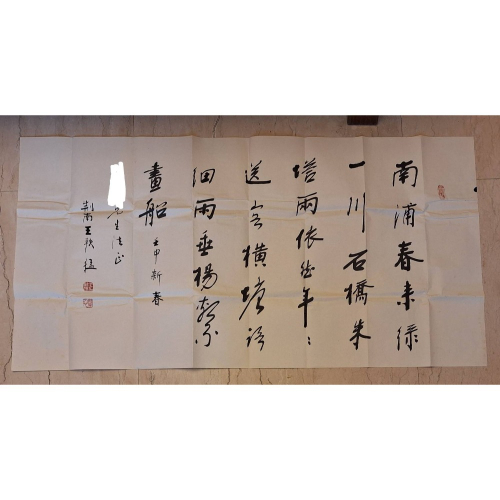 南浦春来緑
一川石橋朱
塔兩依然年々
送客橫塘路
細雨垂楊繫
畫船 壬申新春
先生法正
荆南王